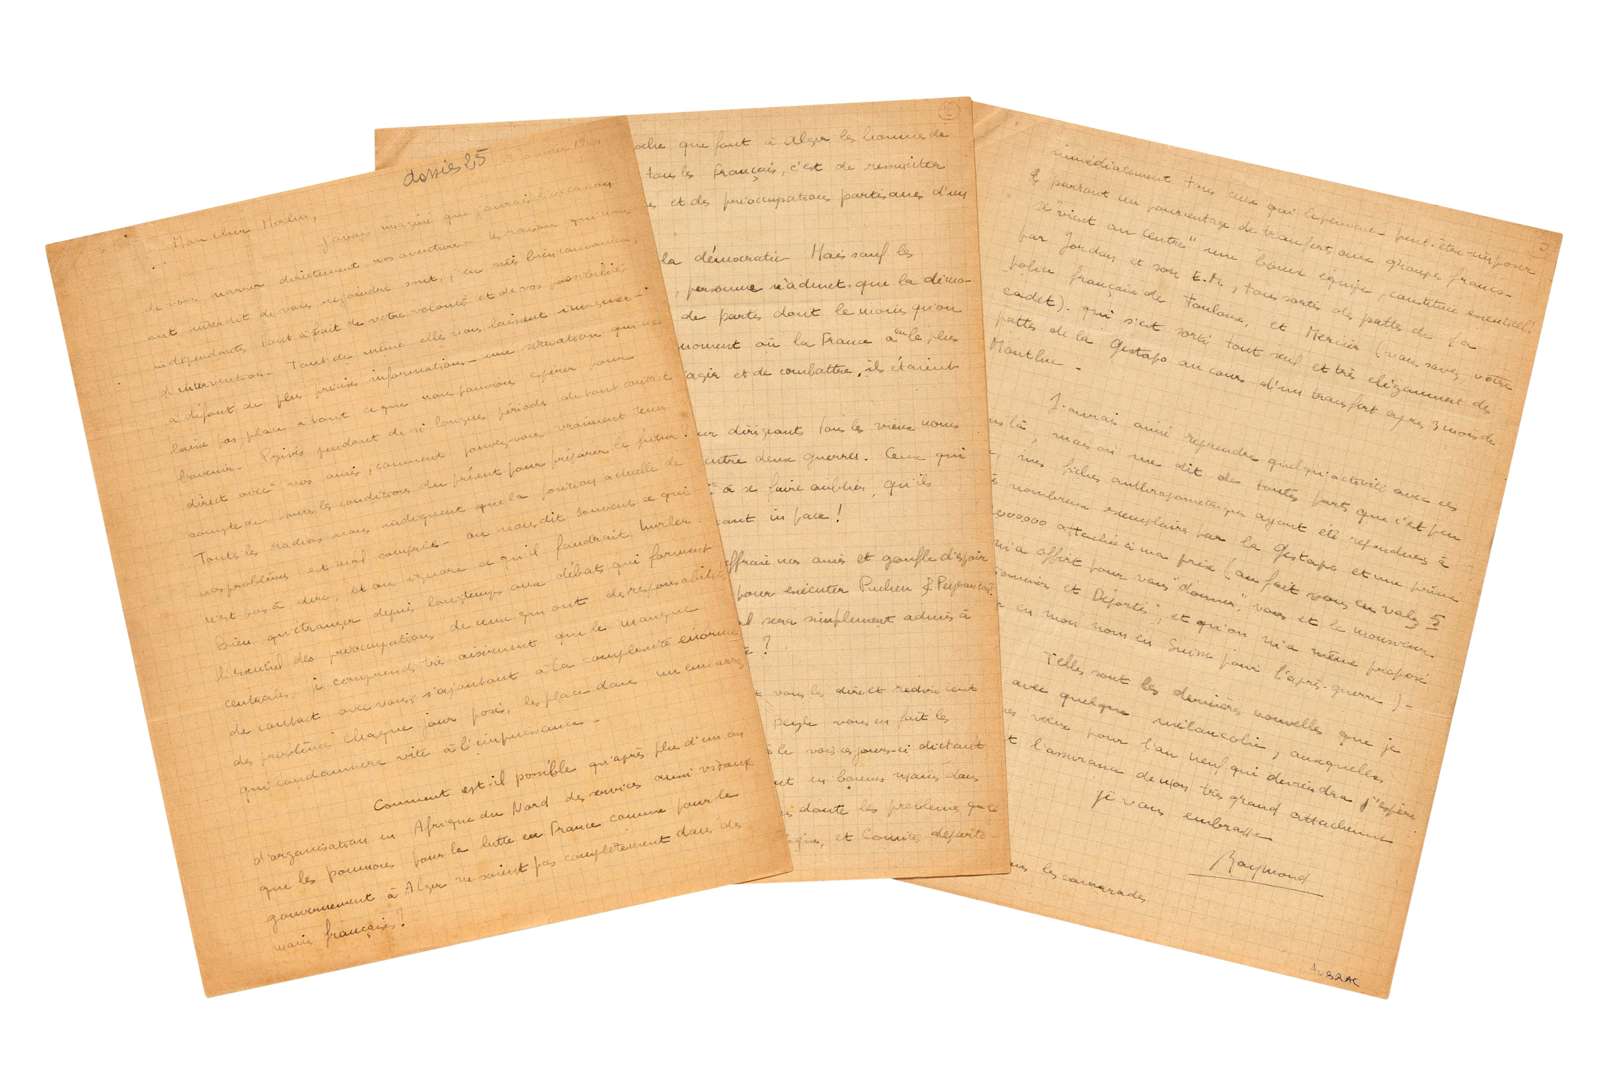 dossier 25
janvier 194
Mon cher Morlin,
J'avais imaginé que j'aurais l'occasion
de vous narrer directement nos aventures. Les raisons qui nous
ont interdit de vous rejoindre sont, j'en suis bien convaincu,
indépendantes tout à fait de votre volonté et de vos possibilités
d'intervention. Tout de même elles nous laissent imaginer -
à défaut de plus précises informations - une situation qui ne
laisse pas place à tout ce que nous pouvions espérer pour
l'avenir. Privés pendant de si longues périodes de tout contact
direct avec nos amis, comment pouvez-vous vraiment tenir
compte dans les conditions du présent pour préparer le futur.
Toutes les radios nous indiquent que la position actuelle de
nos problèmes est mal comprise - on nous dit souvent ce qui
n'est pas à dire, et on ignore ce qu'il faudrait hurler.
Bien qu'étranger depuis longtemps aux débats qui forment
l'essentiel des préoccupations de ceux qui ont des responsabilités
centrales, je comprends très aisément que le manque
de contact avec vous, s'ajoutant à la complexité énorme
des problèmes chaque jour posés, les place dans un embarras
qui condamnera vite à l'impuissance.
Comment est-il possible qu'après plus d'un an
d'organisation en Afrique du Nord des services aussi vitaux
que les pouvoirs pour la lutte en France comme pour le
gouvernement à Alger ne soient pas complètement dans des
mains françaises?
2
que font à Alger les hommes de
tous les français, c'est de ressusciter
et des préoccupations partisanes d'un
la démocratie. Mais sauf les
, personne n'admet que la démo-
de partis dont le moins qu'on
moment où la France a eu le plus
d'agir et de combattre, ils étaient
dirigeant tous les vieux noms
entre deux guerres. Ceux qui
à se faire oublier, qu'ils
in pace!
effraie nos amis et gonfle d'espoir
pour exécuter Pucheu & Peyrouton
sera simplement admis à
?
vous les dire et redire cent
peuple vous en fait les
voici ces jours-ci dictant
en bonnes mains dans
doute les problèmes que
et Comités départe-
3
immédiatement tous ceux qui
& partout un pourcentage de transfert aux groupes francs -
"vient au centre" une bonne équipe, constituée
par Jourdan et son E.M, tous sortis des pattes de la
police française de Toulouse, et Mercier (vous savez, votre
cadet). qui s'est sorti tout seul et très élégamment des
pattes de la Gestapo au cours d'un transfert après 3 mois de
Montluc.
J'aurais aimé reprendre quelqu'activité avec ces
là, mais on me dit de toutes parts que c'est peu
, mes fiches anthropométriques ayant été reproduites à
nombreux exemplaires par la Gestapo et une prime
000000 attachée à ma prise (au fait vous en valez 5
m'a offert pour vous "donner", vous et le monsieur.
et Déporté; et qu'on m'a même proposé
en mon nom en Suisse pour l'après-guerre). -
Telles sont les dernières nouvelles que je
avec quelque mélancolie, auxquelles
vœux pour l'an neuf qui deviendra j'espère
l'assurance de mon très grand attachement
Je vous embrasse
Raymond
les camarades
AUBRAC